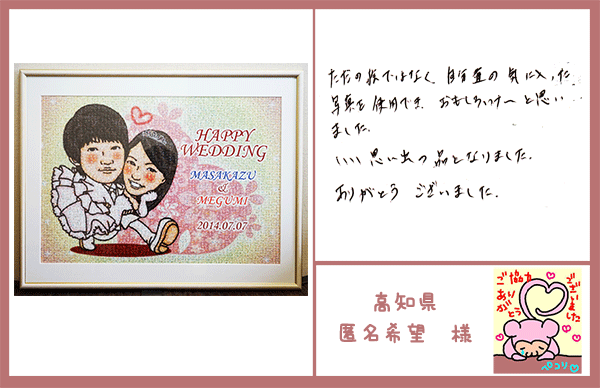 HAPPY
WEDDING
MASAKAZU
&
MEGUMI
2014.07.07
ただの絵ではなく、自分達の気に入った
写真を使用でき、おもしろいなーと思い
ました。
いい思い出の品となりました。
ありがとう ございました。
高知県
匿名希望 様
ご協力
ありがとう
ございました
ペコリ